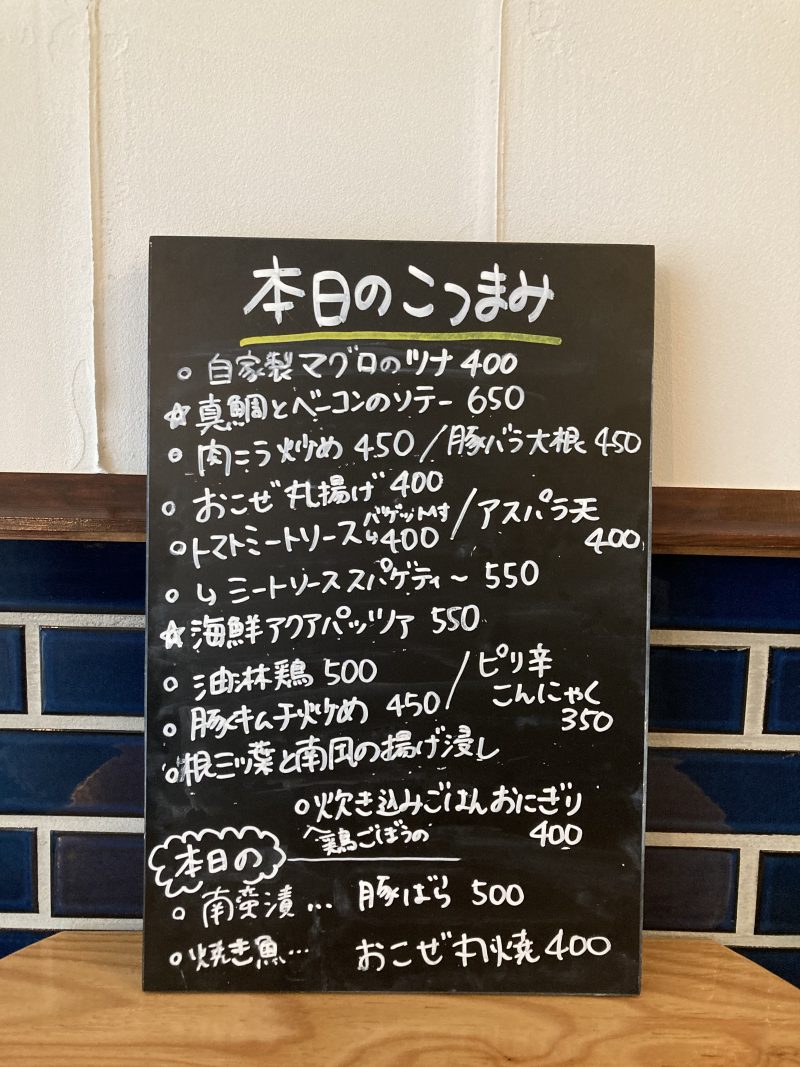 本日のこつまみ
○ 自家製マグロのツナ 400
☆真鯛とベーコンのソテー 650
○ 肉こう炒め 450 / 豚バラ大根 450
○ おこぜ丸揚げ 400
○トマトミートソース バゲット付 400 / アスパラ天 400
○ 〃 ミートソーススパゲティ〜 550
☆海鮮アクアパッツァ 550
○ 油淋鶏 500
○ 豚キムチ炒め 450 / ピリ辛こんにゃく 350
○根三ツ葉と南瓜の揚げ浸し
○炊き込みごはんおにぎり
鶏ごぼうの 400
本日の
○ 南蛮漬… 豚ばら 500
○焼き魚… おこぜ丸焼 400